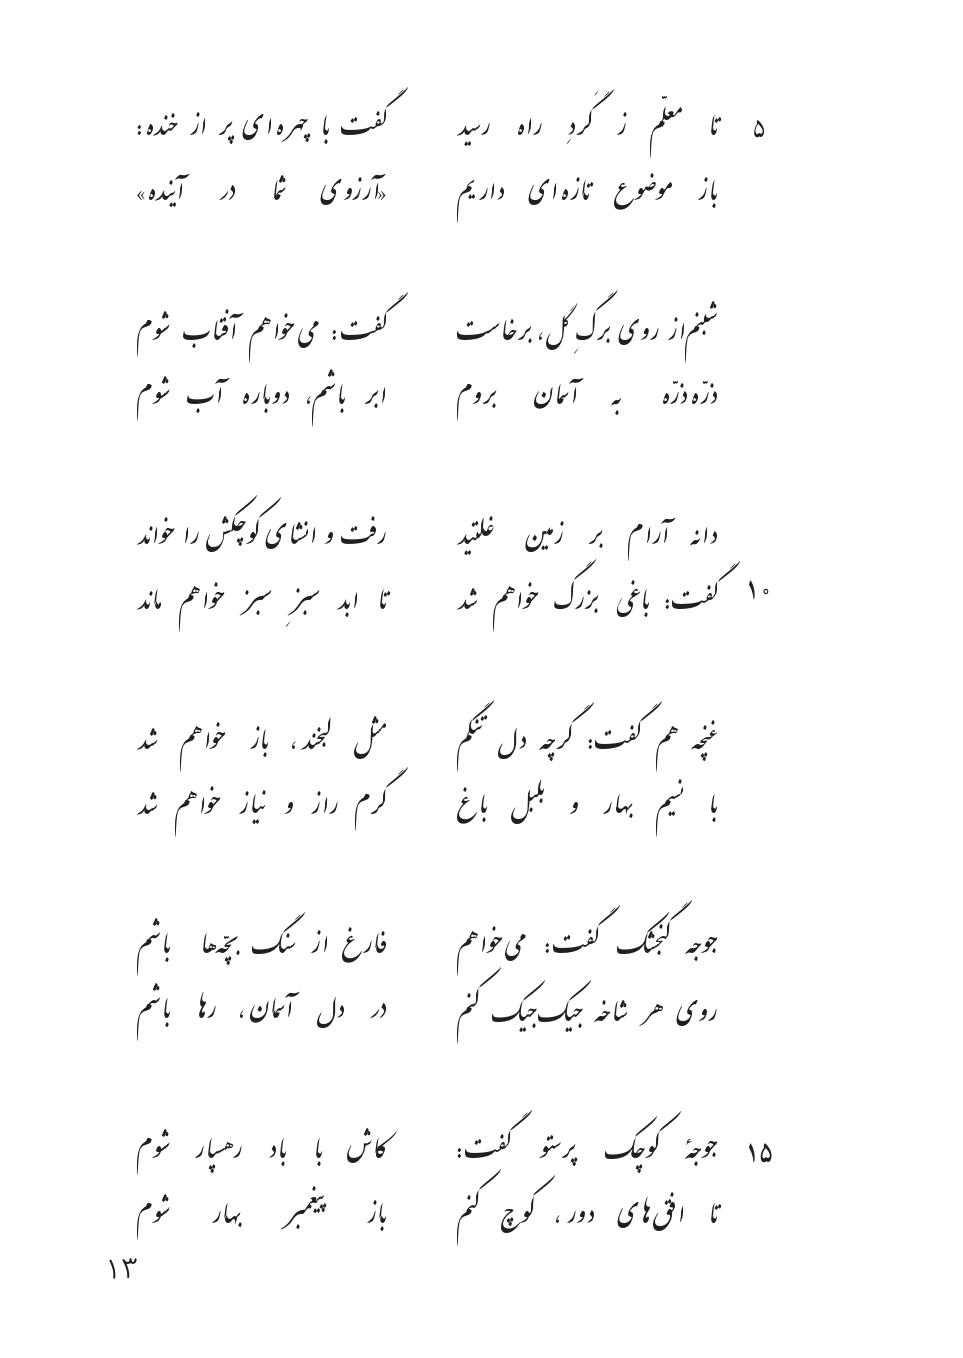 ۵ تا معلّم ز گَردِ راه رسید گفت با چهره‌ای پر از خنده:
باز موضوع تازه‌ای داریم «آرزوی شما در آینده»
شبنم از روی برگِ گل، برخاست گفت: می‌خواهم آفتاب شوم
ذرّه ذرّه به آسمان بروم ابر باشم، دوباره آب شوم
دانه آرام بر زمین غلتید رفت و انشای کوچکش را خواند
۱۰ گفت: باغی بزرگ خواهم شد تا ابد سبزِ سبز خواهم ماند
غنچه هم گفت: گرچه دل تنگم مثل لبخند، باز خواهم شد
با نسیم بهار و بلبل باغ گرم راز و نیاز خواهم شد
جوجه گنجشک گفت: می‌خواهم فارغ از سنگ بچّه‌ها باشم
روی هر شاخه جیک‌جیک کنم در دل آسمان، رها باشم
۱۵ جوجهٔ کوچک پرستو گفت: کاش با باد رهسپار شوم
تا افق‌های دور، کوچ کنم باز پیغمبر بهار شوم
۱۳